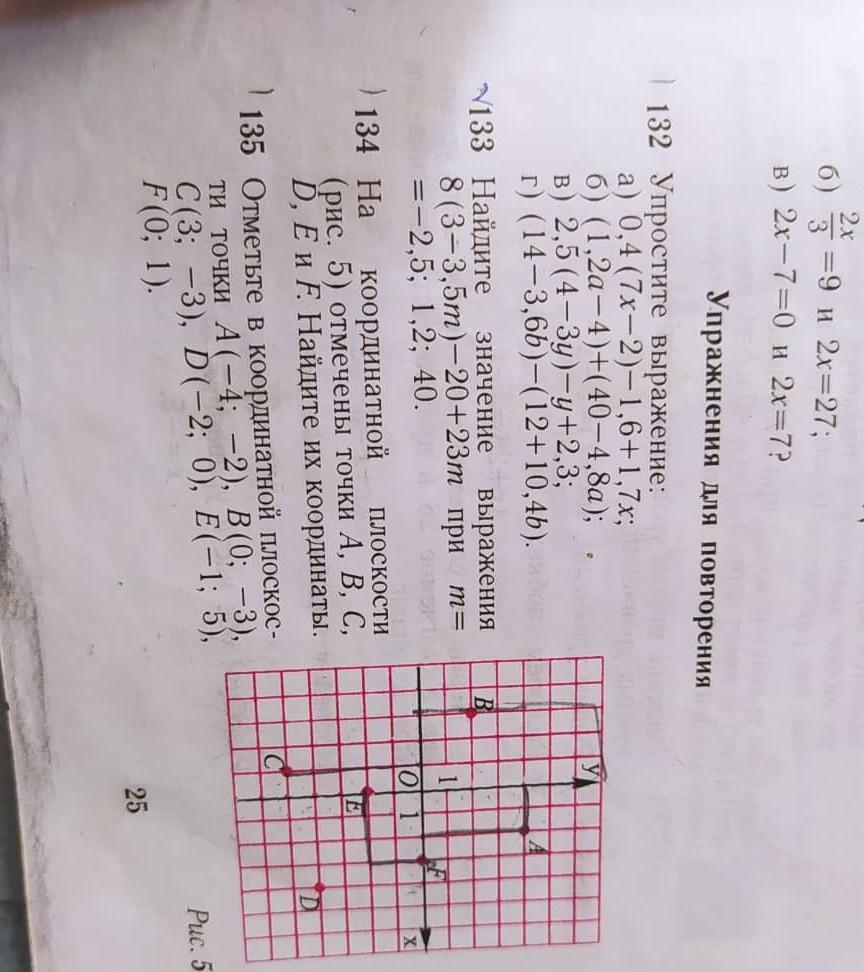 б) 2x/3=9 и 2x=27;
в) 2x−7=0 и 2x=7?
Упражнения для повторения
132 Упростите выражение:
а) 0,4(7x−2)−1,6+1,7x;
б) (1,2a−4)+(40−4,8a);
в) 2,5(4−3y)−y+2,3;
г) (14−3,6b)−(12+10,4b).
√133 Найдите значение выражения
8(3−3,5m)−20+23m при m=
=−2,5; 1,2; 40.
134 На координатной плоскости
(рис. 5) отмечены точки A, B, C,
D, E и F. Найдите их координаты.
135 Отметьте в координатной плоскос-
ти точки A(−4; −2), B(0; −3),
C(3; −3), D(−2; 0), E(−1; 5),
F(0; 1).
y
A
B
1
O
1
F
x
E
D
C
Рис. 5
25